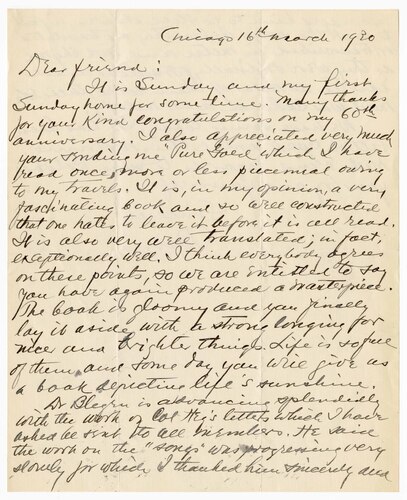 Chicago 16th March 1930
Dear friend:
It is Sunday and my first
Sunday home for some time. Many thanks
for your kind congratulations on my 60th
anniversary. I also appreciated very much
your sending me "Pure Gold" which I have
read once, more or less piecemeal owing
to my travels. It is, in my opinion, a very
fascinating book and so well constructed
that one hates to leave it before it is all read.
It is also very well translated; in fact,
exceptionally well. I think everybody agrees
on these points, so we are entitled to say
you have again produced a masterpiece.
The book is gloomy and you finally
lay it aside with a strong longing for
nicer and brighter things. Life is so full
of them and some day you will give us
a book depicting life's sunshine.
Dr Blegen is advancing splendidly
with the work on Col Heg's letters which I have
asked be sent to all members. He said
the work on the "songs" was progressing very
slowly for which I thanked him sincerely and